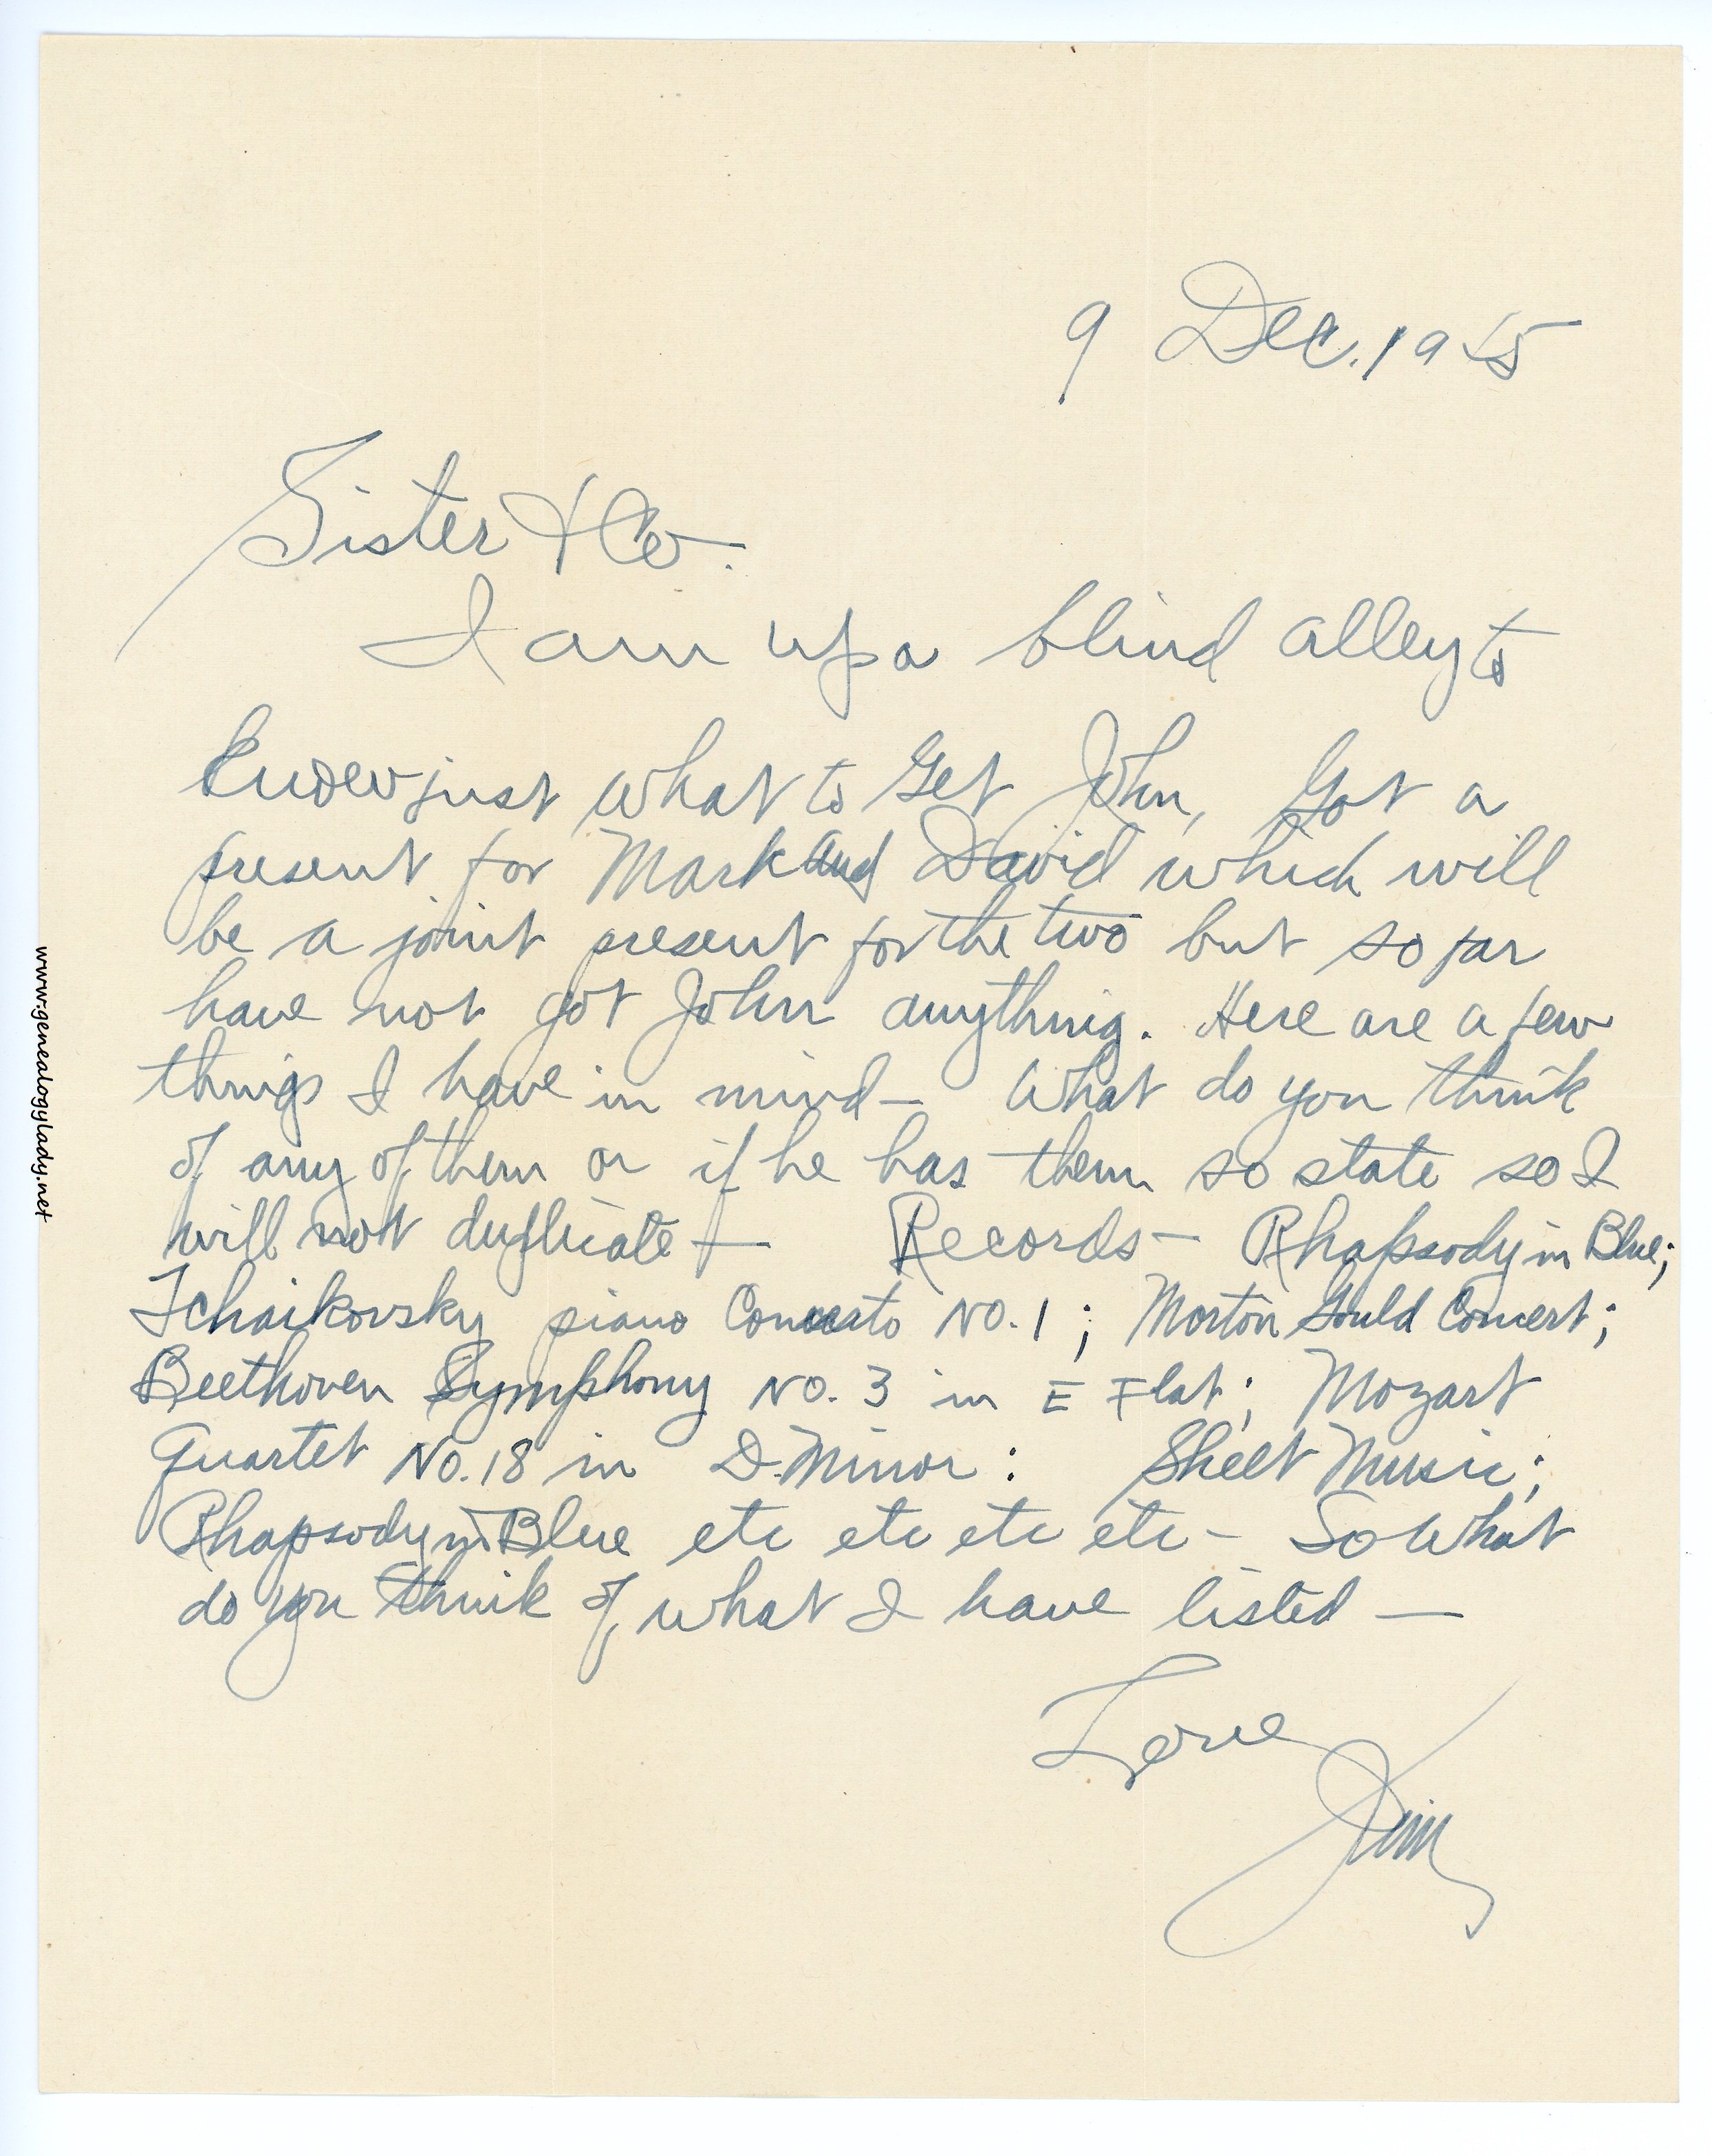 9 Dec. 1945
Sister & Co.
I am up a blind alley to
know just what to get John, Got a
present for Mark and David which will
be a joint present for the two but so far
have not got John anything. Here are a few
things I have in mind — What do you think
of any of them or if he has them so state so I
will not duplicate — Records — Rhapsody in Blue;
Tchaikovsky piano Concerto No. 1; Morton Gould Concert;
Beethoven Symphony No. 3 in E Flat; Mozart
Quartet No. 18 in D. Minor: Sheet Music;
Rhapsody in Blue etc etc etc etc — So what
do you think of what I have listed —
Love
Jim
www.genealogylady.net